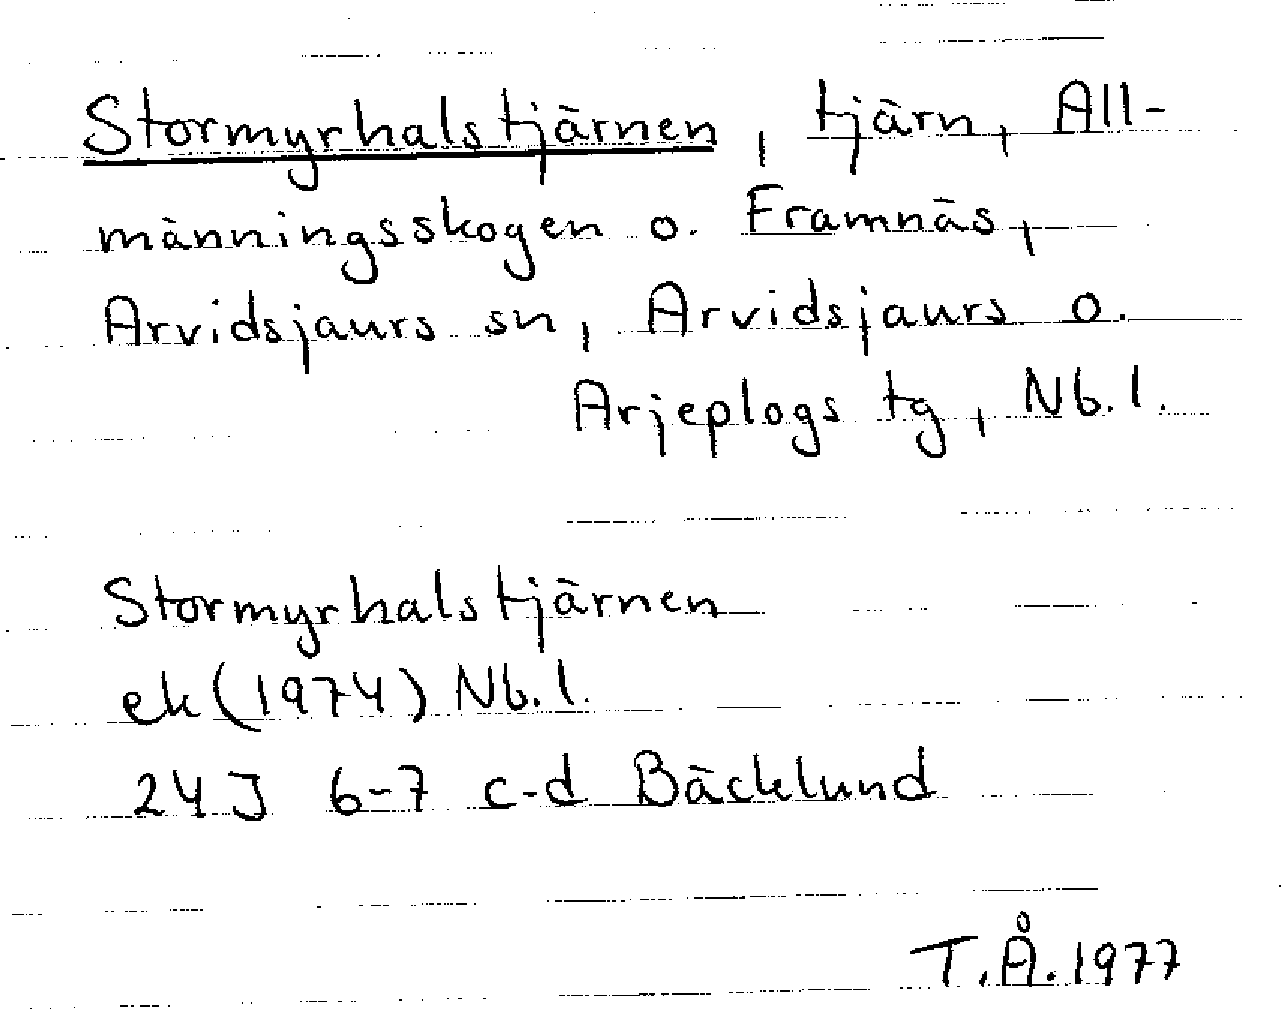 Stormyrhalstjärnen, tjärn, All-
männingsskogen o. Framnäs,
Arvidsjaurs sn, Arvidsjaurs o.
Arjeplogs tg, Nb.l.
Stormyrhalstjärnen
ek (1974) Nb.l.
24J 6-7 c-d Bäcklund
T.Å.1977